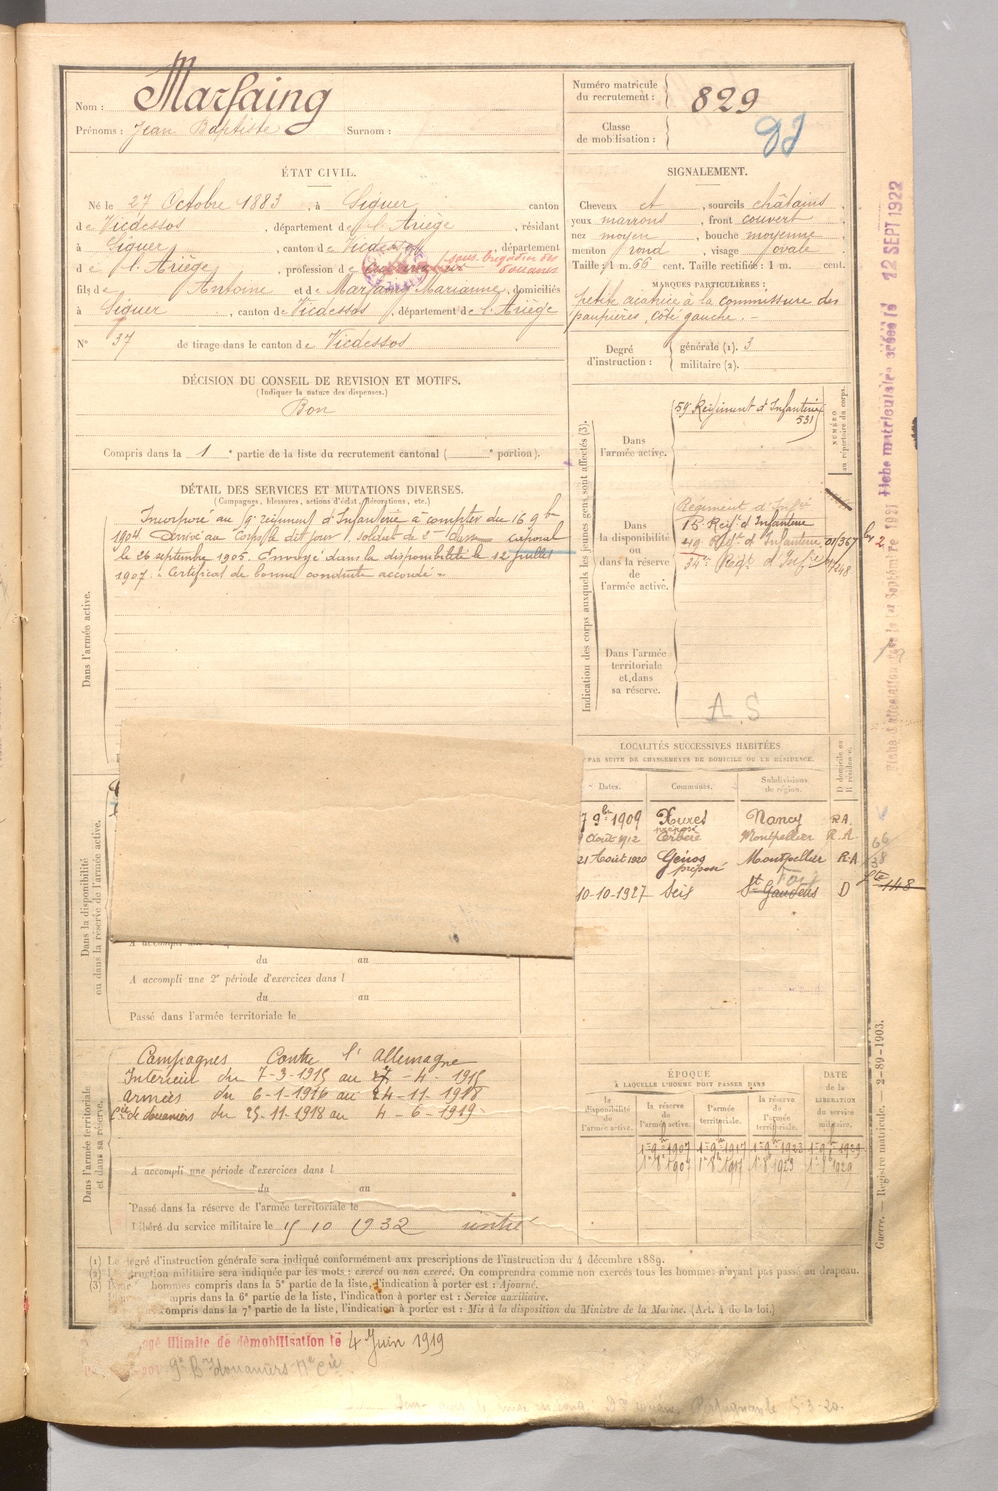 Nom : Marfaing
Prénoms : Jean Baptiste Surnom :
Numéro matricule du recrutement : 829
Classe de mobilisation :
ÉTAT CIVIL.
Né le 27 Octobre 1883, à Siguer canton
de Vicdessos, département de l'Ariège, résidant
à Siguer, canton de Vicdessos département
de l'Ariège, profession de sous-brigadier des douanes
fils de Antoine et de Marfaing Marianne, domiciliés
à Siguer, canton de Vicdessos, département de l'Ariège
N° 37 de tirage dans le canton de Vicdessos
SIGNALEMENT.
Cheveux et, sourcils châtains,
yeux marrons, front couvert
nez moyen, bouche moyenne
menton rond, visage ovale
Taille : 1 m. 66 cent. Taille rectifiée : 1 m. cent.
MARQUES PARTICULIÈRES :
Petite cicatrice à la commissure des
paupières, côté gauche. -
Degré d'instruction :
générale (1). 3
militaire (2).
DÉCISION DU CONSEIL DE REVISION ET MOTIFS.
(Indiquer la nature des dispenses.)
Bon
Compris dans la 1e partie de la liste du recrutement cantonal ( e portion).
DÉTAIL DES SERVICES ET MUTATIONS DIVERSES.
(Campagnes, blessures, actions d'éclat, décorations, etc.)
Dans l'armée active.
Incorporé au 59e régiment d'Infanterie à compter du 16 9bre
1904 Arrivé au Corps le dit jour, soldat de 2e classe caporal
le 26 septembre 1905. Envoyé dans la disponibilité le 12 juillet
1907. « Certificat de bonne conduite accordé »
Indication des corps auxquels les jeunes gens sont affectés (3).
NUMÉRO au répertoire du corps.
Dans l'armée active.
59e Régiment d'Infanterie
531
Dans la disponibilité ou dans la réserve de l'armée active.
Régiment d'Infrie
Régt d'Infanterie
49 Régt d'Infanterie 01367
34e Régt d'Infrie
Dans l'armée territoriale et dans sa réserve.
A. S
LOCALITÉS SUCCESSIVES HABITÉES
PAR SUITE DE CHANGEMENTS DE DOMICILE OU DE RÉSIDENCE.
Dates. Communes. Subdivisions de région. D domicile ou R résidence.
7 9bre 1909 Xures Nancy RA
9 Août 1912 Cerbère Montpellier R.A
21 Août 1920 Génos préposé Montpellier R.A
10-10-1927 Seix St Gaudens Foix D
Dans la disponibilité ou dans la réserve de l'armée active.
du au
A accompli une 2e période d'exercices dans l
du au
Passé dans l'armée territoriale le
Dans l'armée territoriale et dans sa réserve.
Campagnes Contre l'Allemagne
Intérieur du 7-3-1915 au -4-1915
armées du 6-1-1916 au 24-11-1918
Cie de douaniers du 25-11-1918 au 4-6-1919
A accompli une période d'exercices dans l
du au
Passé dans la réserve de l'armée territoriale le
Libéré du service militaire le 15 10 1932
ÉPOQUE
À LAQUELLE L'HOMME DOIT PASSER DANS
DATE de la LIBÉRATION du service militaire.
la disponibilité de l'armée active.
la réserve de l'armée active.
l'armée territoriale.
la réserve de l'armée territoriale.
1er 9bre 1907 1er 9bre 1917 1er 9bre 1923 1er 9bre 1929
1er 8bre 1907 1er 8bre 1917 1er 8bre 1923 1er 8bre 1929
(1) Le degré d'instruction générale sera indiqué conformément aux prescriptions de l'instruction du 4 décembre 1889.
(2) L'instruction militaire sera indiquée par les mots : exercé ou non exercé. On comprendra comme non exercés tous les hommes n'ayant pas passé au drapeau.
(3) hommes compris dans la 5e partie de la liste, l'indication à porter est : Ajourné.
compris dans la 6e partie de la liste, l'indication à porter est : Service auxiliaire.
compris dans la 7e partie de la liste, l'indication à porter est : Mis à la disposition du Ministre de la Marine. (Art. 4 de la loi.)
illimité de démobilisation le 4 Juin 1919
douaniers
5-3-20.
Guerre. — Registre matricule. — 2-89-1903.
Fiche matriculaire créée le 12 SEPT 1922